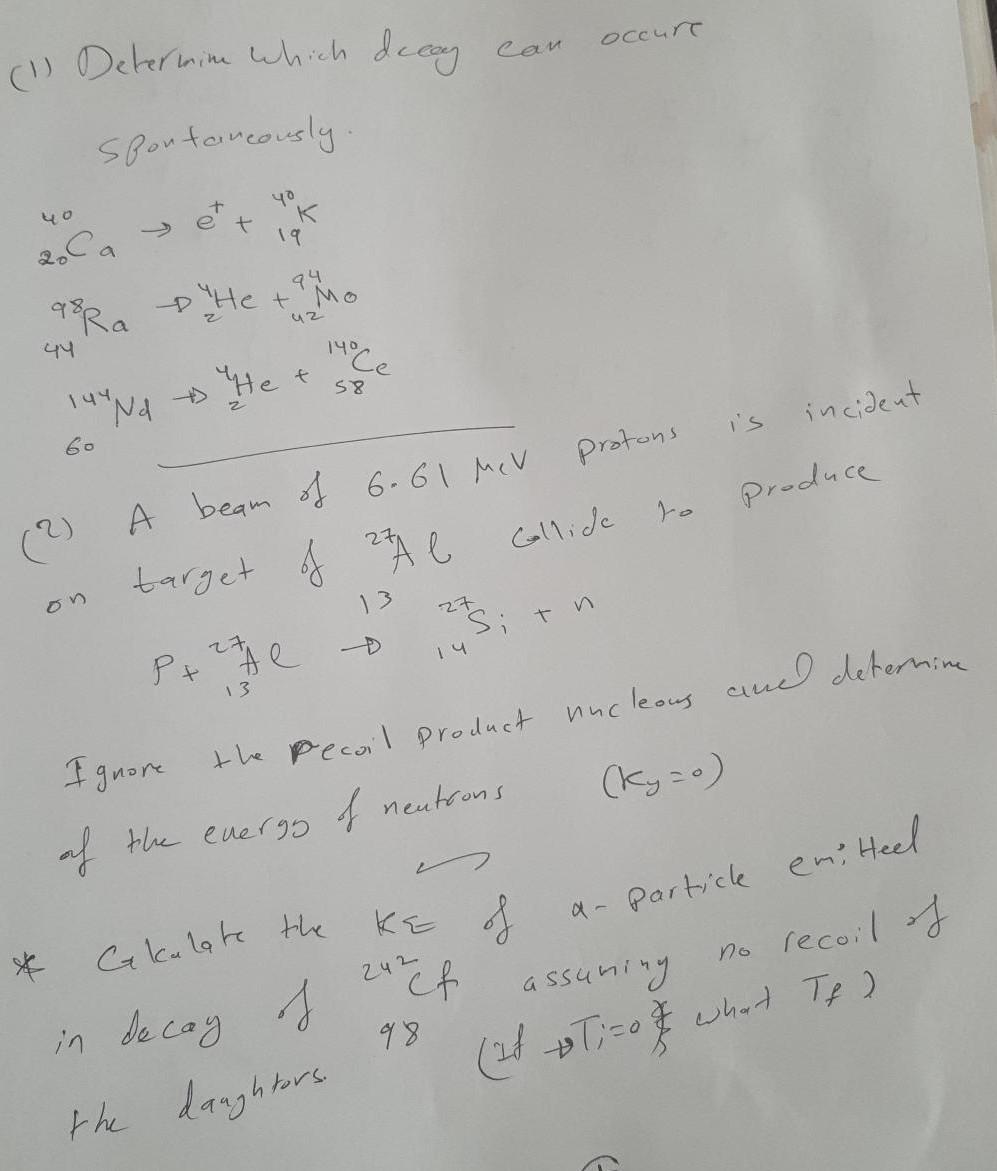 (1) Determine which decay can occure
spontaneously.
⁴⁰₂₀Ca → e⁺ + ⁴⁰₁₉K
⁹⁸₄₄Ra → ⁴₂He + ⁹⁴₄₂Mo
¹⁴⁴₆₀Nd → ⁴₂He + ¹⁴⁰₅₈Ce
(2) A beam of 6.61 MeV protons is incident
on target of ²⁷₁₃Al Collide to produce
P + ²⁷₁₃Al → ²⁷₁₄Si + n
Ignore the recoil product nucleous and determine
of the energy of neutrons (Ky=0)
* Calculate the KE of α-Particle emitted
in decay of ²⁴²₉₈Cf assuming no recoil of
the daughters. (If → Ti=0 & what Tf)